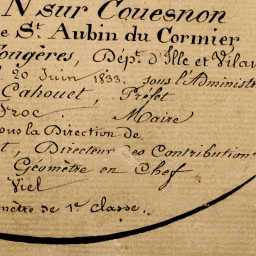 N sur Couesnon
e St. Aubin du Cormier
ougères, Dépt. d'Ille et Vilai
20 Juin 1833. sous l'Administr
Cahouet, Préfet
Froc. Maire
ous la Direction de
t, Directeur des Contribution
Géomètre en Chef
Viel
mètre de 1re Classe.